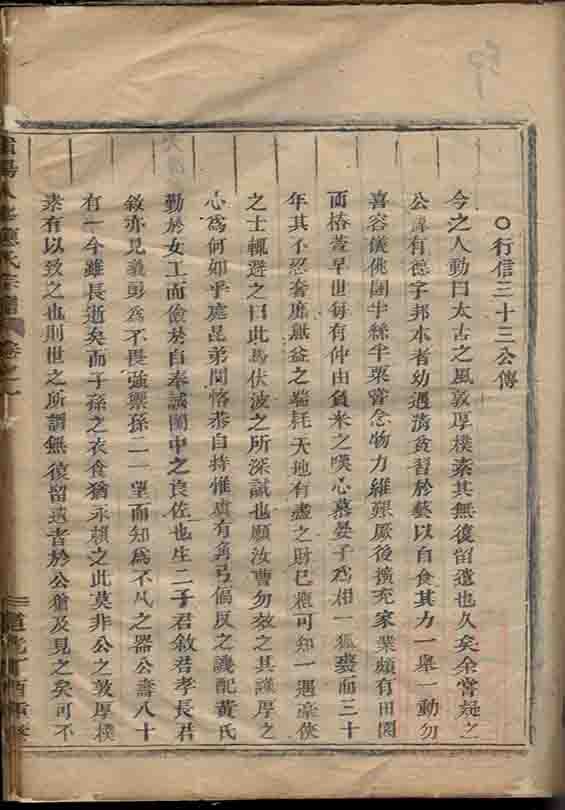 ○行信三十三公傳
今之人動曰太古之風敦厚樸素其無復留遺也久矣余嘗疑之
公諱有德字邦本者幼遇清貧習於藝以自食其力一舉一動勿
喜容儀佻闥半絲半粟嘗念物力維艱厥後擴充家業頗有田園
而椿萱早世每有仲由負米之嘆心慕晏子為相一狐裘而三十
年其不忍奢靡無益之端耗天地有盡之財已槪可知一遇豪俠
之士輒避之曰此馬伏波之所深誡也願汝曹勿效之其謹厚之
心為何如乎處昆弟間恪恭自持惟虞有角弓偏反之譏配黃氏
勤於女工而儉於自奉誠閫中之良佐也生二子君敘君孝長君
敘亦見義勇為不畏強禦孫二一望而知為不凡之器公壽八十
有一今雖長逝矣而子孫之衣食猶永賴之此莫非公之敦厚樸
素有以致之也則世之所謂無復留遺者於公猶及見之矣可不
氏宗譜
卷之
道光丁酉重修